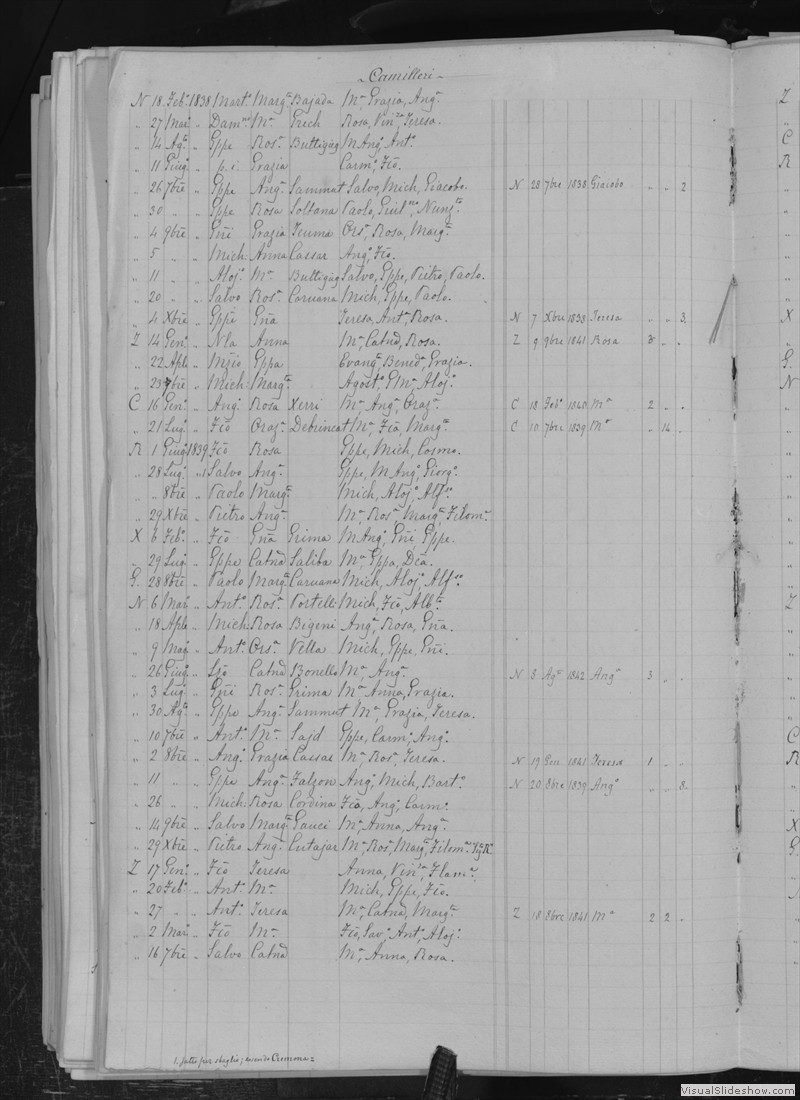 Camilleri
N 18 Feb. 1838 Mart. Marg.a Bajada M.a Grazia, Ang.a
" 27 Mar. " Dam.no M.a Grech Rosa, Vin.za Teresa.
" 14 Ag. " Gppe Ros.a Buttigieg M Ang.a Ant.a
" 11 Giug. " p. i. Grazia Carm.a Fco.
" 26 7bre " Gppe Ang.a Sammut Salvo, Mich, Giacobo. N 28 7bre 1838 Giacobo " " 2
" 30 " " Gppe Rosa Soltana Paolo, Guil.mo Nunz.a
" 4 9bre " Gni Grazia Teuma Ors.a Rosa, Marg.a
" 5 " " Mich. Anna Cassar Ang. Fco.
" 11 " " Aloj. M.a Buttigieg Salvo, Gppe, Pietro, Paolo.
" 20 " " Salvo Ros.a Caruana Mich, Gppe, Paolo.
" 4 Xbre " Gppe Gna Teresa, Ant.a Rosa. N 7 Xbre 1838 Teresa " " 3
Z 14 Gen. " Nla Anna M.a Catna, Rosa. Z 9 9bre 1841 Rosa 3 " "
" 22 Aple " Gppa Evang.a Bened.a Grazia.
" 23 7bre " Mich. Marg.a Agost. G M.a Aloj.
C 16 Gen. " Ang. Rosa Xerri M.a Ang. Oraz. C 18 Feb. 1840 M.a 2 " "
" 21 Lug. " Fco Oraz.a Debrincat M.a Fca, Marg.a C 10 7bre 1839 M.a " 14 "
R 1 Giug. 1839 Fco Rosa Gppe, Mich, Cosmo.
" 28 Lug. "1 Salvo Ang.a Gppe, M Ang. Giorg.
" " 8bre " Paolo Marg.a Mich, Aloj. Alf.so
" 29 Xbre " Pietro Ang.a M.a Ros.a Marg.a Filom.a
X 6 Feb. " Fco Gna Grima M Ang. Gni, Gppe.
" 29 Lug. " Gppe Catna Saliba M.a Gppa, Dca.
G. 28 8bre " Paolo Marg.a Caruana Mich, Aloj. Alf.so
N 6 Mar. " Ant. Ros.a Portelli Mich, Fco, Alb.
" 18 Aple " Mich. Rosa Bigeni Ang.a Rosa, Gna.
" 9 Mag. " Ant. Ors.a Vella Mich, Gppe, Gni.
" 26 Giug. " Lco Catna Bonello M.a Ang.a N 8 Ag. 1842 Ang.a 3 " "
" 3 Lug. " Gni Ros.a Grima M.a Anna, Grazia.
" 30 Ag. " Gppe Ang.a Sammut M.a Grazia, Teresa.
" 10 7bre " Ant. M.a Sajd Gppe, Carm. Ang.
" 2 8bre " Ang. Grazia Cassar M.a Ros.a Teresa. N 19 Gen 1841 Teresa 1 " "
" 11 " " Gppe Ang.a Falzon Ang. Mich, Bart. N 20 8bre 1839 Ang. " " 8
" 26 " " Mich. Rosa Cordina Fca, Ang. Carm.
" 14 9bre " Salvo Marg.a Gauci M.a Anna, Ang.a
" 29 Xbre " Pietro Ang.a Cutajar M.a Ros.a Marg.a Filom.a
Z 17 Gen. " Fco Teresa Anna, Vin.za Flam.a
" 20 Feb. " Ant. M.a Mich, Gppe, Fco.
" 27 " " Ant. Teresa M.a Catna, Marg.a Z 18 8bre 1841 M.a 2 2 "
" 2 Mar. " Fco M.a Fco, Sav. Ant. Aloj.
" 16 7bre " Salvo Catna M.a Anna, Rosa.
1. fatto per sbaglio; essendo Cremona =
VisualSlideshow.com